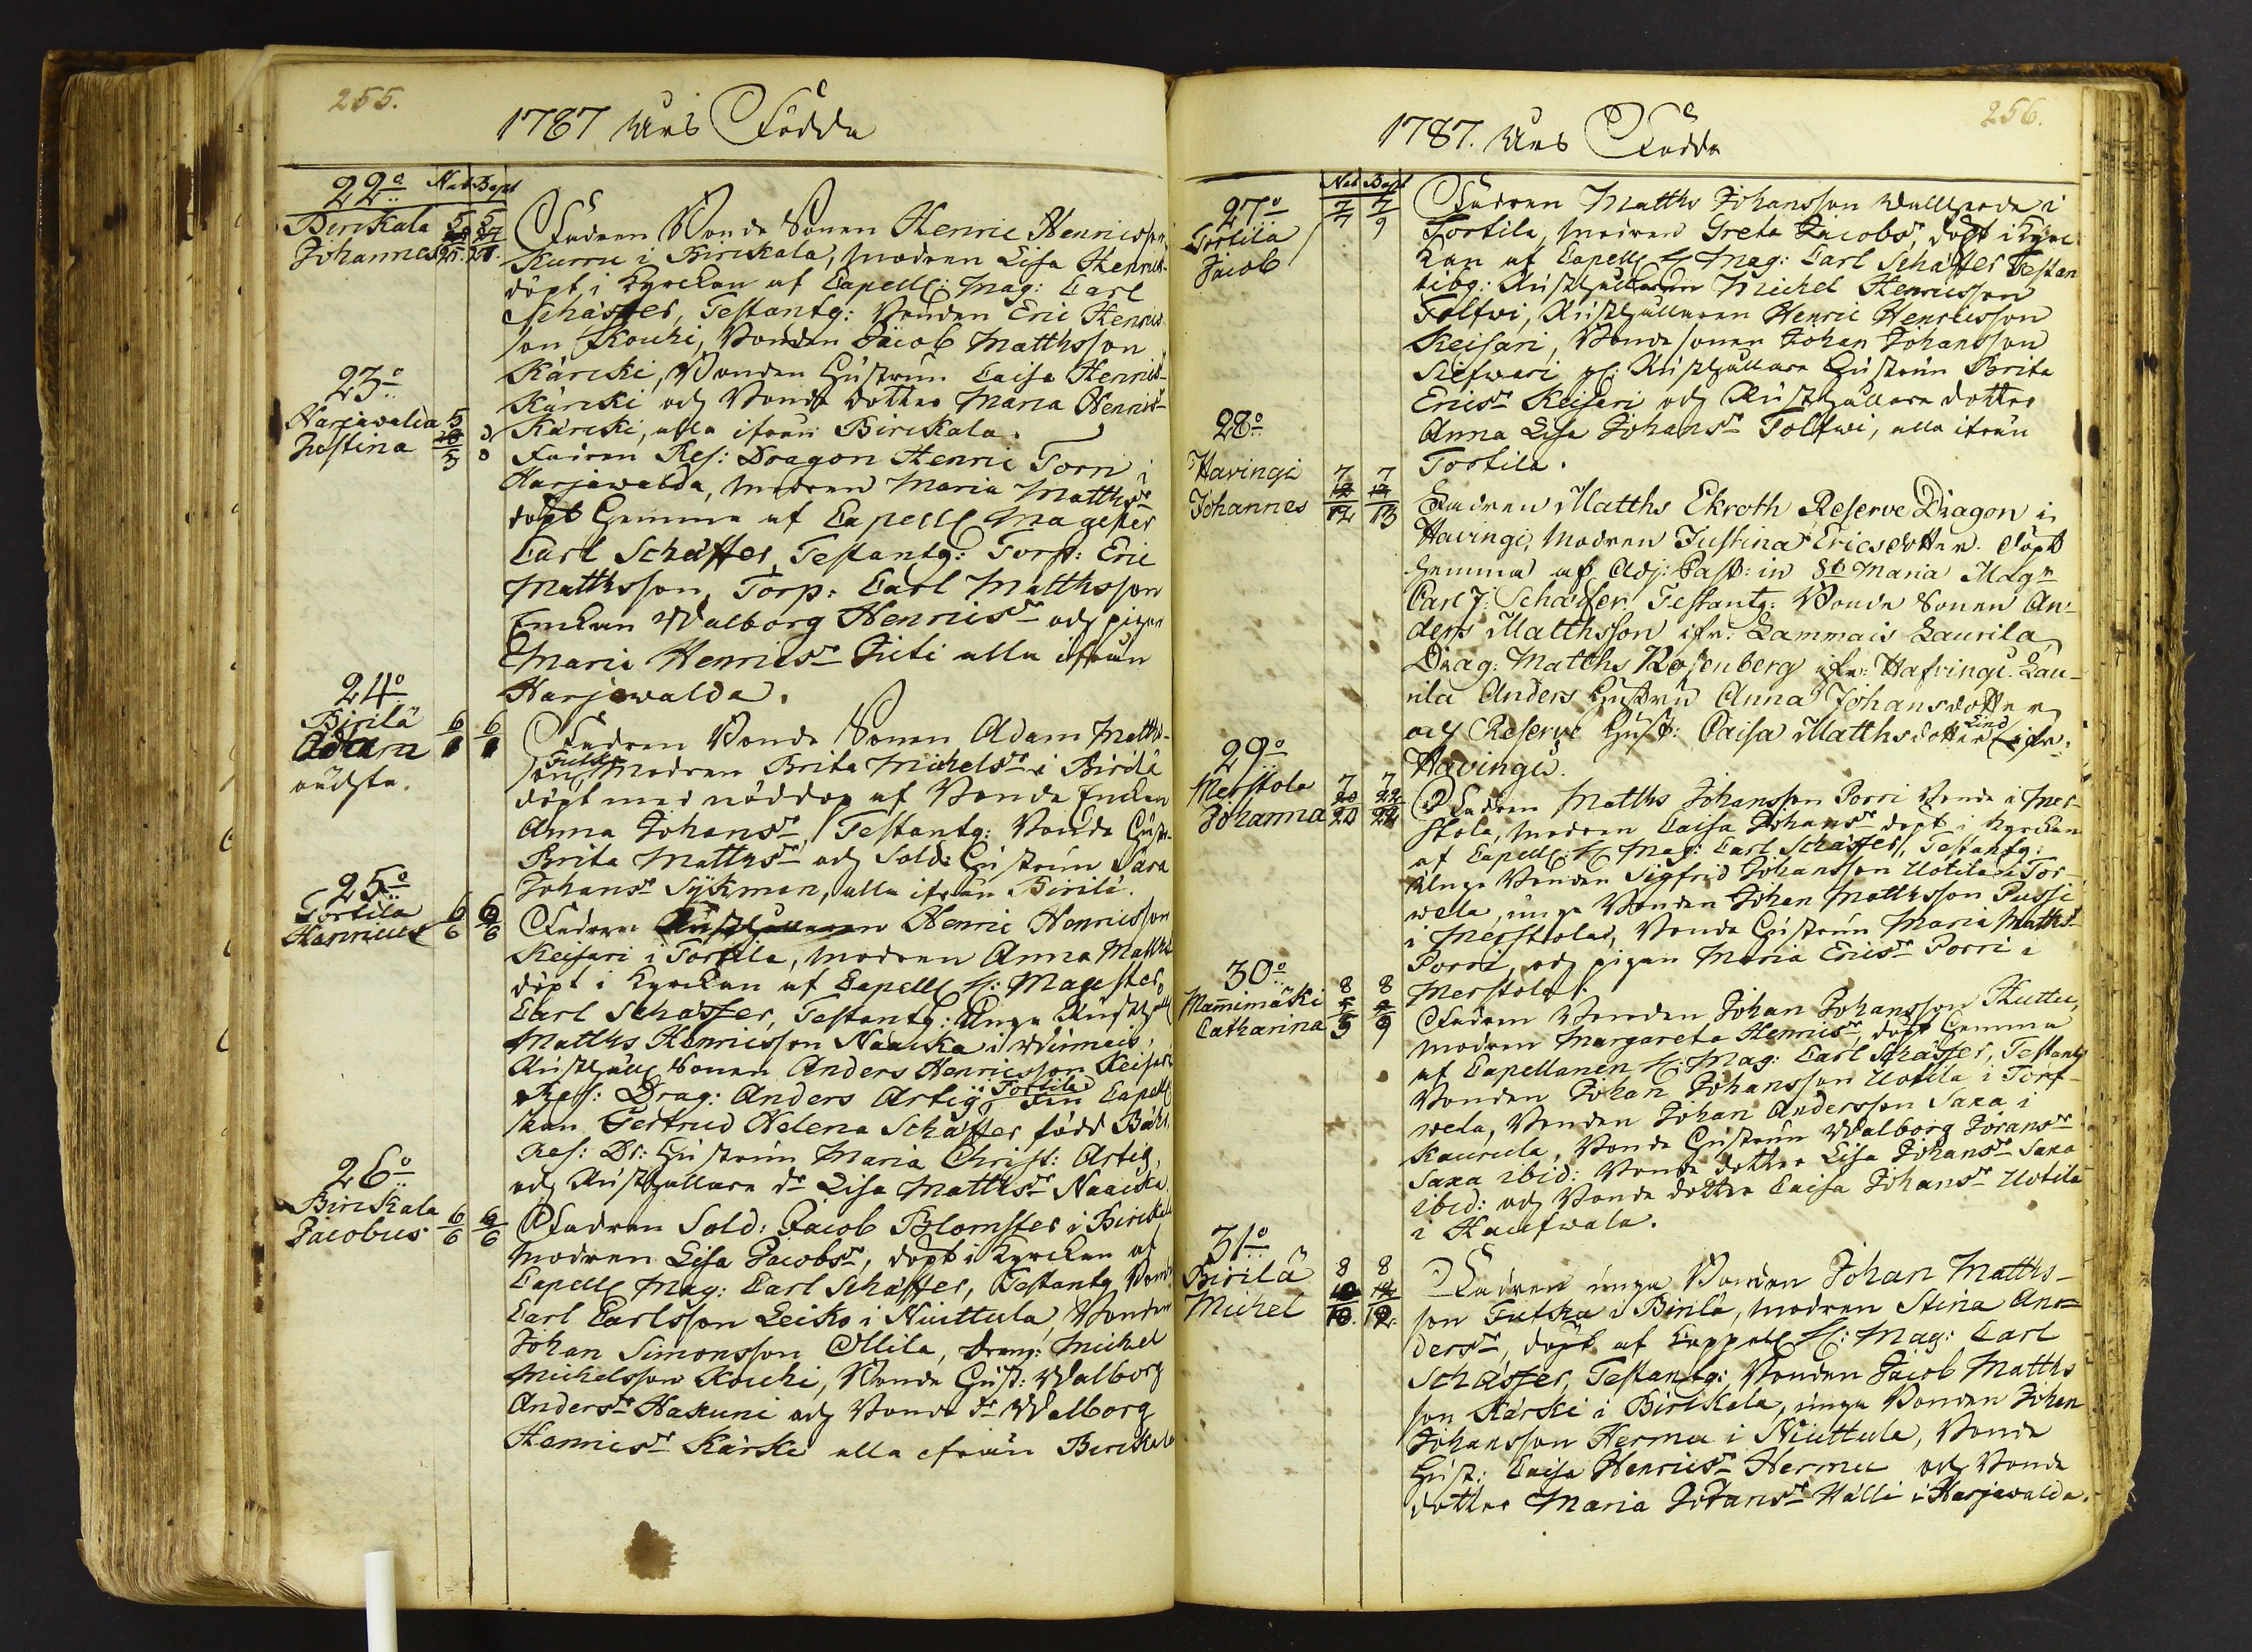 255.
1787 Års Födda
22o Nat Bapt
Birckala 5 5
Johannes 25. 26.
Fadren Bonde Sonen Henric Henricsson
Kurru i Birckala, modren Lisa Henrics-
döpt i Kyrckan af Capell: Mag: Carl
Schäffer, Testantg: Bonden Eric Henrics
son Kouhi, Bonden Jacob Matthsson
Kärcki, Bonden Hustrun Caisa Henrics-
Kärcki och Bonde dotter Maria Henrics-
Kärcki, alla ifrån Birckala.
23o
Harjawalda 5
Justina 3
Fadren Res: Dragon Henric Torn i
Harjawalda, modren Maria Matthsdr
döpt Hemma af Capell Magister
Carl Schäffer, Testantg: Torp: Eric
Matthsson, Torp: Carl Matthsson
Enckan Walborg Henricsdr och pigan
Maria Henricsdr alla ifrån
Harjawalda.
24o
Birilä 6 6
Adam
nödd.
Fadren Bonde Sonen Adam Matths-
son modren Brita Michelsdr i Birilä
döpt med nöddop af Bonde Enckan
Anna Johansdr, Testantg: Bonde Hustr
Brita Matthsdr och Sold: Hustrun Sara
Johansdr Syckman, alla ifrån Birilä.
25o
Torttila 6 6
Henricus 6 6
Fadren Rusthållaren Henric Henricsson
Keisari i Torttila, modren Anna Matths
döpt i Kyrckan af Capell H: Magister
Carl Schäffer, Testantg: Unga Rusth
Matths Henricsson Naaicka i
Rusthåll Sonen Anders Henricsson Keisari
Res: Drag: Anders Artig i Torttila Fru Capell
skan Gertrud Helena Schäffer född Bäck,
Res: Dr: Hustrun Maria Christ: Artig,
och Rusthållare dr Lisa Matthsdr Naaicka.
26o
Birckala 6 6
Jacobus 6 6
Fadren Sold: Jacob Blomster i Birckala
modren Lisa Jacobsdr, döpt i Kyrckan af
Capell Mag: Carl Schäffer, Testantg Bonde
Carl Carlsson Leiko i Niuttula, Bonden
Johan Simonsson Ollila, Dreng: Michel
Michelsson Kouhi, Bonde Hust: Walborg
Andersdr Hakuni och Bonde dr Walborg
Henricsdr Kärcki alla ifrån Birckala
256.
1787. Års Födda
Nat Bapt
27o 7 7
Torttila 7 9
Jacob
Fadren Matths Johansson Wallgerde i
Torttila, modren Greta Jacobsdr, döpt i Kyrc
kan af Capell H Mag: Carl Schäffer Testan
tibg: Rusthållaren Michel Henricsson
Tolfwi, Rusthållaren Henric Henricsson
Keisari, Bonde sonen Johan Johansson
Siefwari Rusthållare Hustrun Brita
Ericsdr Keisari och Rusthållare dotter
Anna Lisa Johansdr Tolfwi, alla ifrån
Torttila.
28o
Havingi 7 7
Johannes 12 13
Fadren Matths Ekroth Reserve Dragon i
Havingi, modren Justina Ericsdotter. döpt
Hemma af Adj: Past: in St Maria Magr
Carl J: Schäffer Testantg: Bonde Sonen An-
ders Matthsson ifr: Lammais Laurila,
Drag: Matths Rosenberg ifr: Hafvingi. Lau-
rila Anders Hustru Anna Johansdotter
och Reserve Hust: Caisa Matthsdotter Lind ifr:
Havingi.
29o
Merstola 7 7
Johanna 20 22
Fadren Matths Johansson Porri Bonde i Mer-
stola, modren Caisa Johansdr döpt i Kyrckan
af Capell H Mag: Carl Schäffer, Testantg:
Unga Bonden Sigfrid Johansson Uotila i Tor-
wela, unga Bonden Johan Matthsson Pussi
i Merstola, Bonde Hustrun Maria Matths
Porri, och pigan Maria Ericsdr Porri i
Merstola.
30o
Mam̄imäki 8 8
Catharina 5 9
Fadren Bonden Johan Johansson Huttu,
modren Margareta Henricsdr, döpt Hemma
af Capellanen H: Mag: Carl Schäffer, Testantg
Bonden Johan Johansson Uotila i Torf-
wela, Bonden Johan Andersson Saxa i
Kaurula, Bonde Hustrun Walborg Joransdr
Saxa ibid: Bonde dotter Lisa Johansdr Saxa
ibid: och Bonde dotter Caisa Johansdr Uotila
i Haufwala.
31o
Birilä 8 8
Michel 10. 12.
Fadren unga Bonden Johan Matths-
son Futka i Birilä, modren Stina An-
dersdr, döpt af Cappell H: Mag: Carl
Schäffer, Testantg: Bonden Jacob Matths
son Kärcki i Birckala, unga Bonden Johan
Johansson Hermu i Niuttula, Bonde
Hust: Caisa Henricsdr Hermu och Bonde
dotter Maria Johansdr Hälli i Harjawalda.